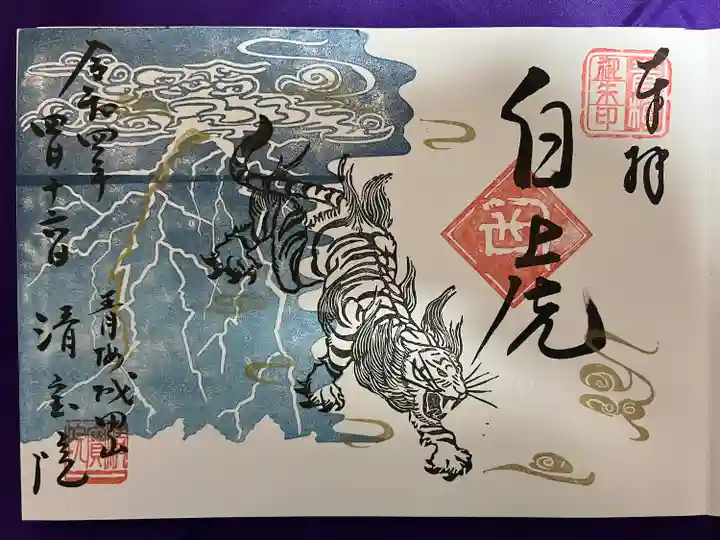 奉拝
御朱印
白虎
令和四年
四月十六日
青梅成田
清宝院